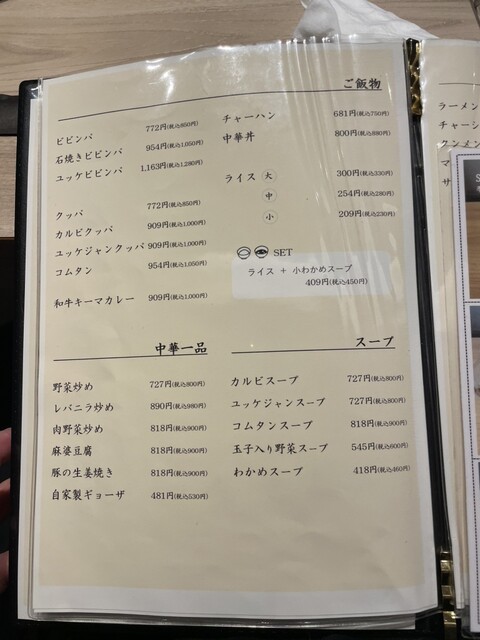 ご飯物
ビビンバ 772円(税込850円)
石焼きビビンバ 954円(税込1,050円)
ユッケビビンバ 1,163円(税込1,280円)
クッパ 772円(税込850円)
カルビクッパ 909円(税込1,000円)
ユッケジャンクッパ 909円(税込1,000円)
コムタン 954円(税込1,050円)
和牛キーマカレー 909円(税込1,000円)
チャーハン 681円(税込750円)
中華丼 800円(税込880円)
ライス 大 300円(税込330円)
中 254円(税込280円)
小 209円(税込230円)
SET
ライス + 小わかめスープ
409円(税込450円)
中華一品
野菜炒め 727円(税込800円)
レバニラ炒め 890円(税込980円)
肉野菜炒め 818円(税込900円)
麻婆豆腐 818円(税込900円)
豚の生姜焼き 818円(税込900円)
自家製ギョーザ 481円(税込530円)
スープ
カルビスープ 727円(税込800円)
ユッケジャンスープ 727円(税込800円)
コムタンスープ 818円(税込900円)
玉子入り野菜スープ 545円(税込600円)
わかめスープ 418円(税込460円)
ラーメン
チャーシ